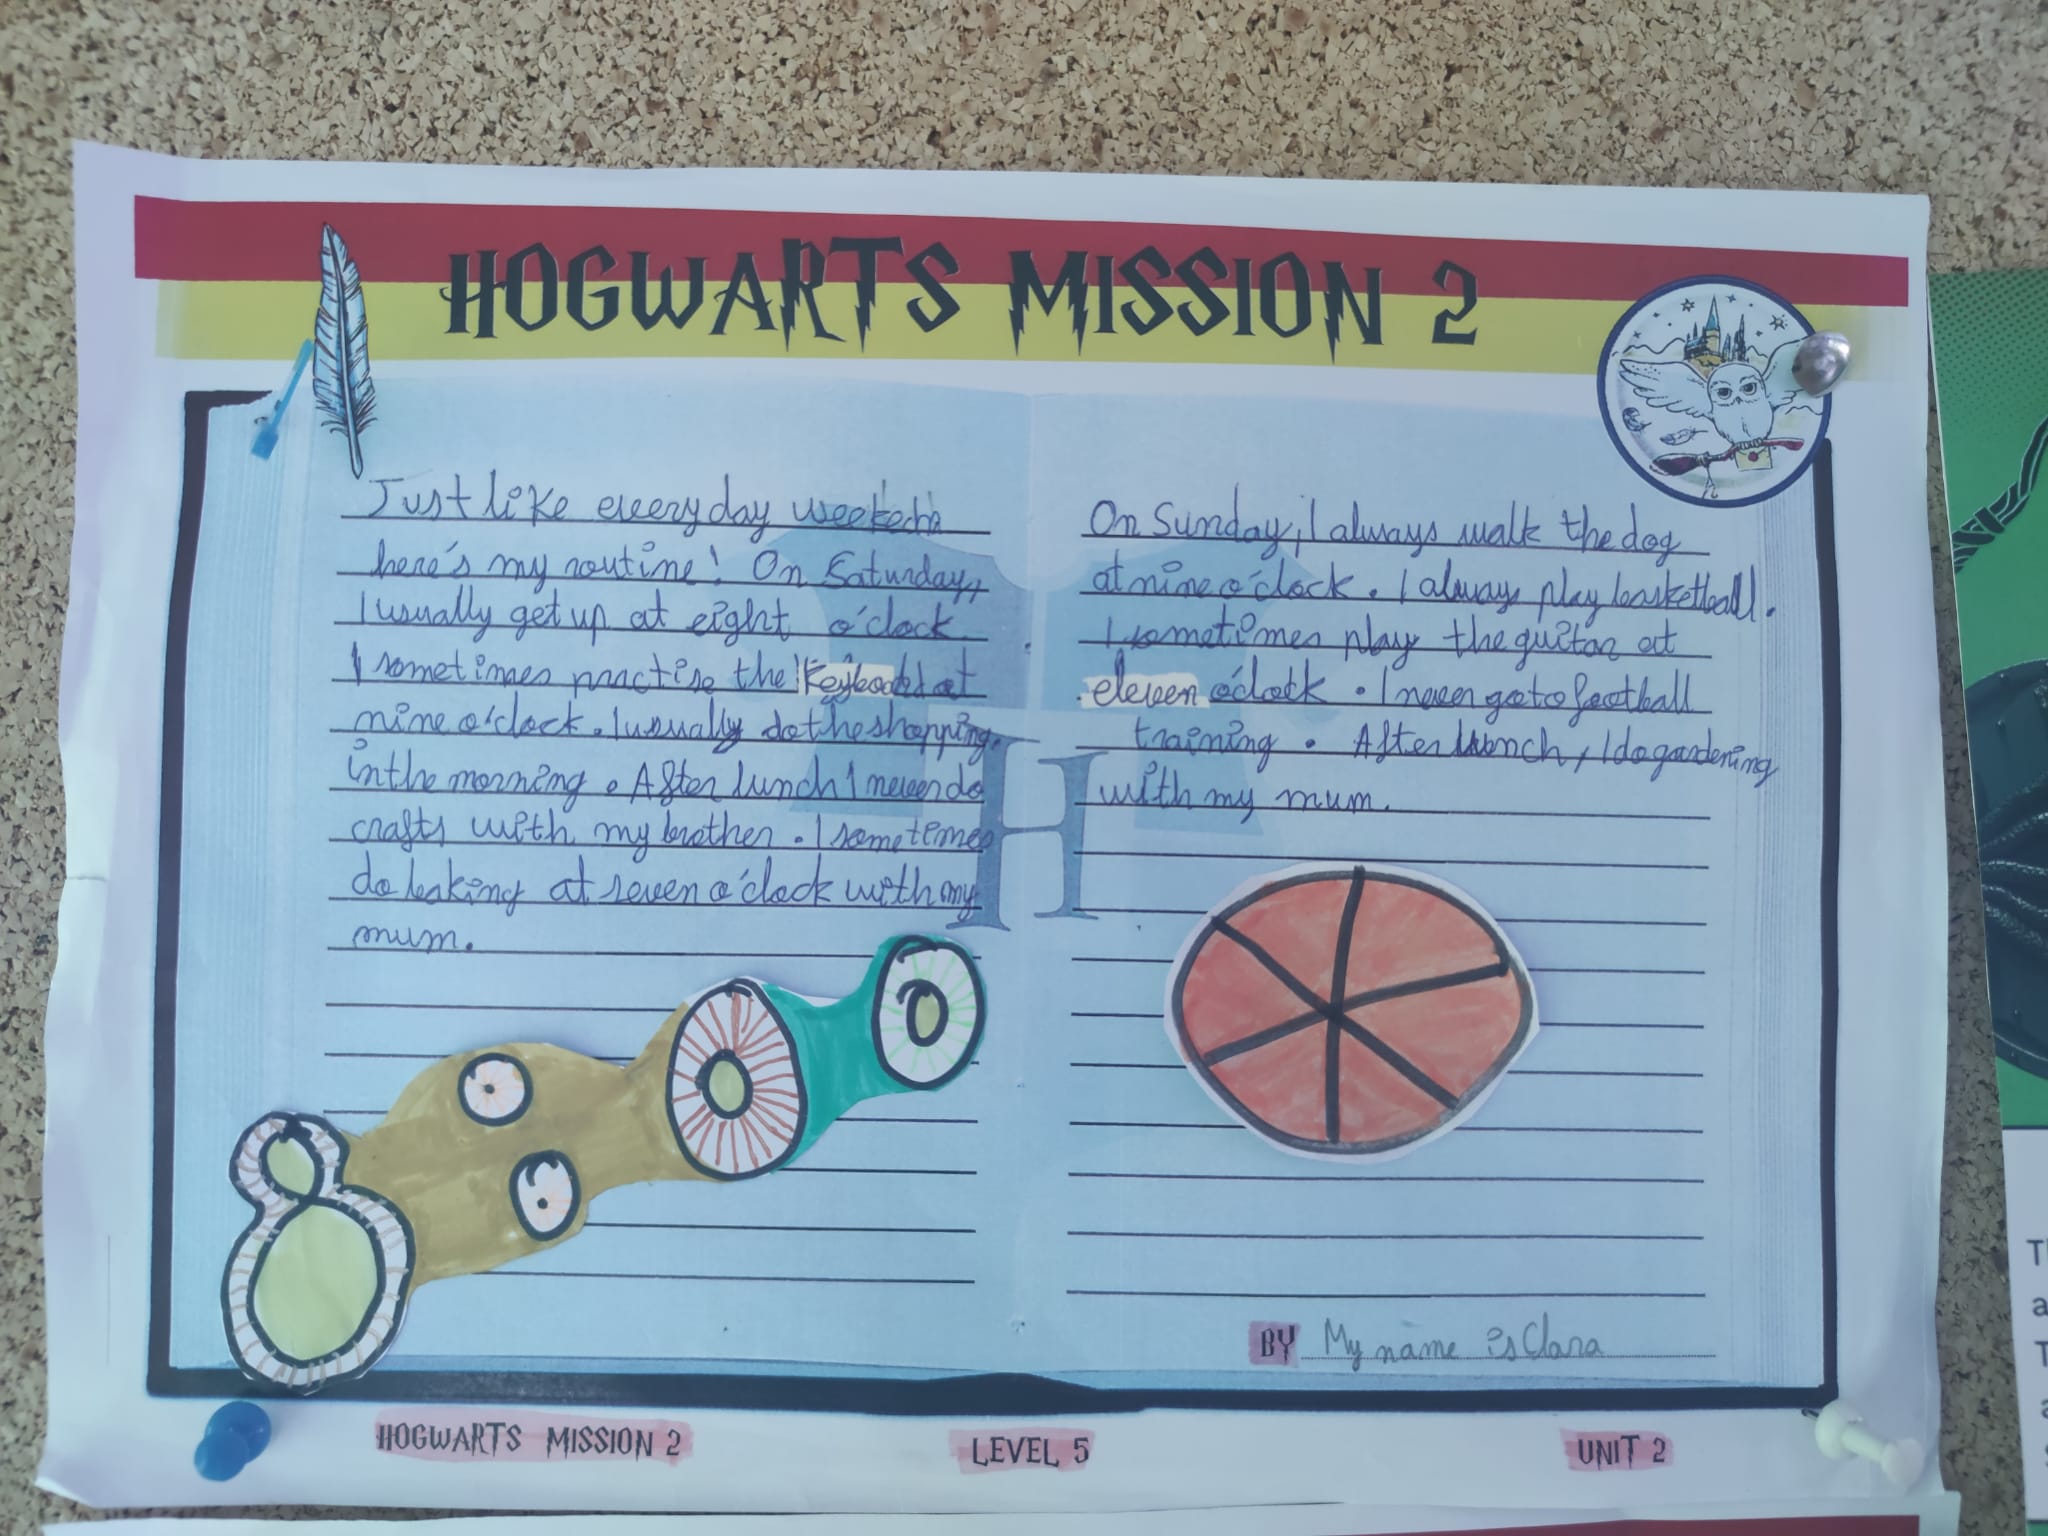 HOGWARTS MISSION 2
Just like everyday
here's my routine! On Saturday,
I usually get up at eight o'clock.
I sometimes practise the keyboard at
nine o'clock. I usually do the shopping
in the morning. After lunch I never do
crafts with my brother. I sometimes
do baking at seven o'clock with my
mum.
On Sunday, I always walk the dog
at nine o'clock. I always play basketball.
I sometimes play the guitar at
eleven o'clock. I never go to football
training. After lunch, I do gardening
with my mum.
H
BY My name is Clara
HOGWARTS MISSION 2 LEVEL 5 UNIT 2